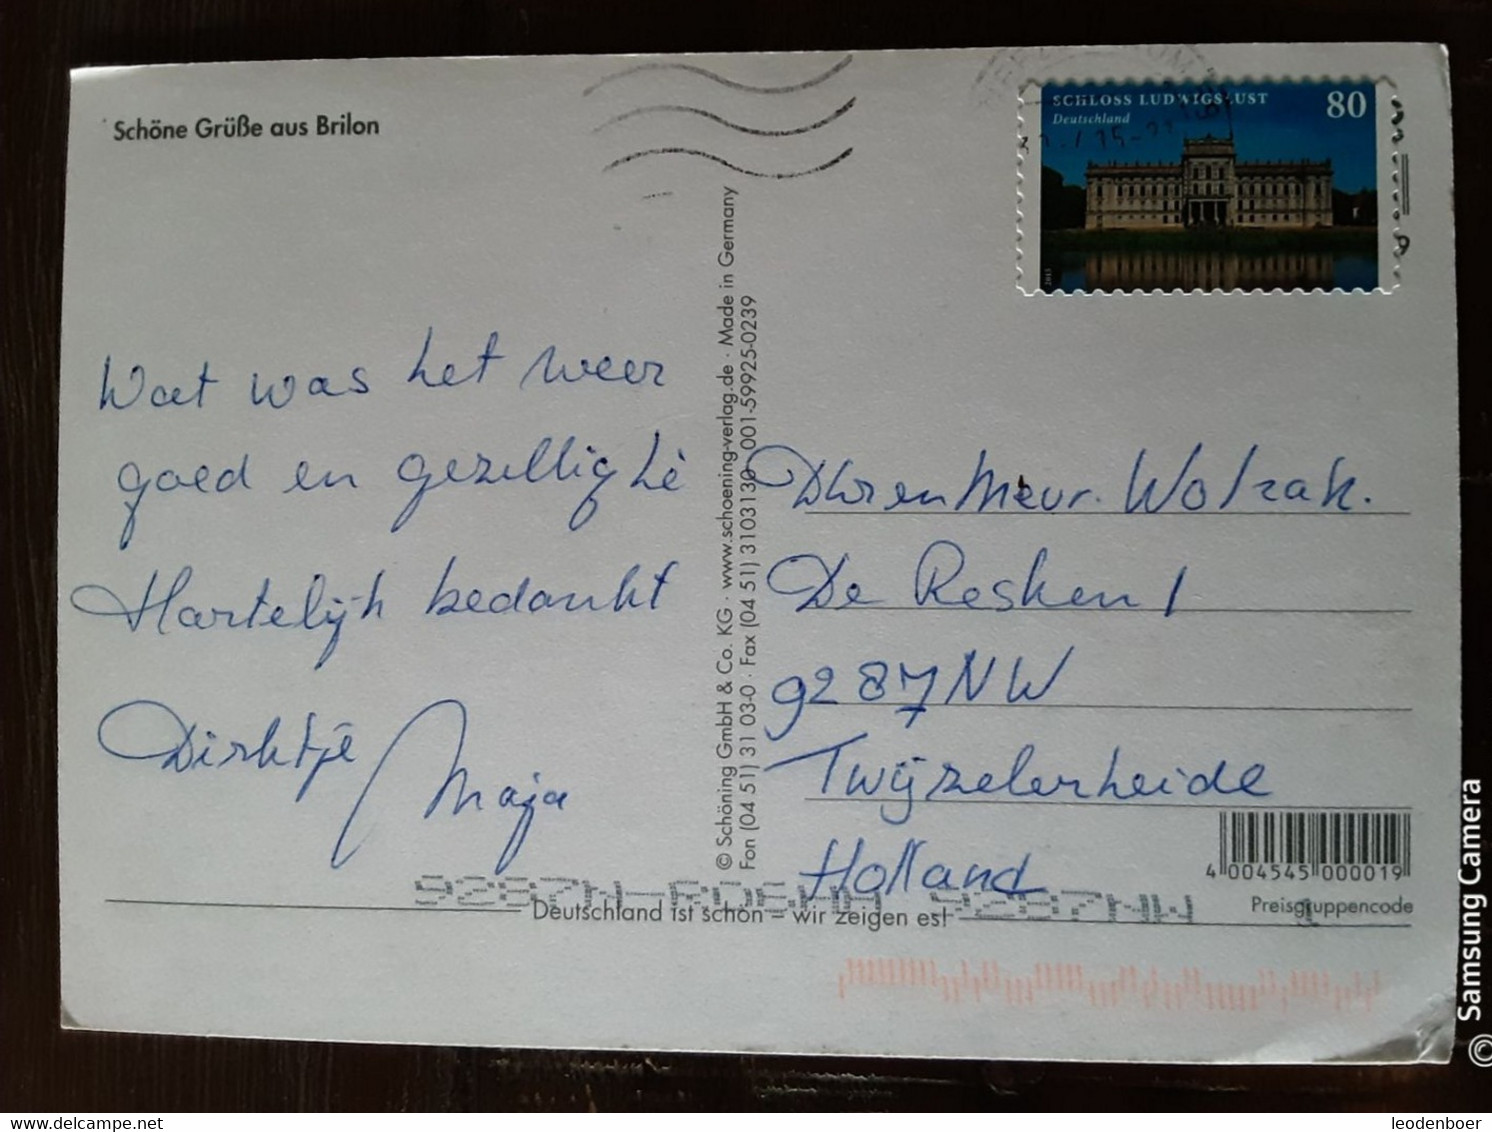 Schöne Grüße aus Brilon
SCHLOSS LUDWIGSLUST 80
Deutschland
2015
Wat was het weer
goed en gezellig hè
Hartelijk bedankt
Dirktje
Maja
© Schöning GmbH & Co. KG · www.schoening-verlag.de · Made in Germany
Fon (04 51) 31 03-0 · Fax (04 51) 3103130 001-59925-0239
Dhr en Mevr. Wolzak.
De Resken 1
9287NW
Twijzelerheide
Holland
4 004545 000019
Preisgruppencode
9287NW
Deutschland ist schön – wir zeigen es!
© Samsung Camera
delcampe.net
leodenboer